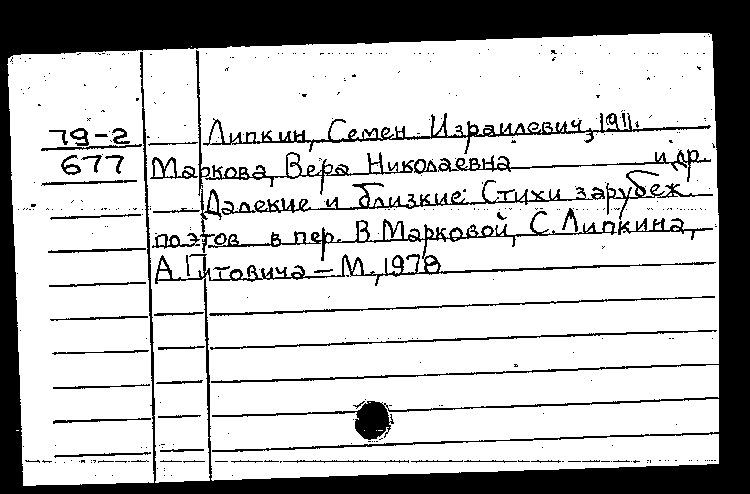 79-2 Липкин, Семен Израилевич, 1911.
677 Маркова, Вера Николаевна и др.
Далекие и близкие: Стихи зарубеж.
поэтов в пер. В. Марковой, С. Липкина,
А. Гитовича — М., 1978